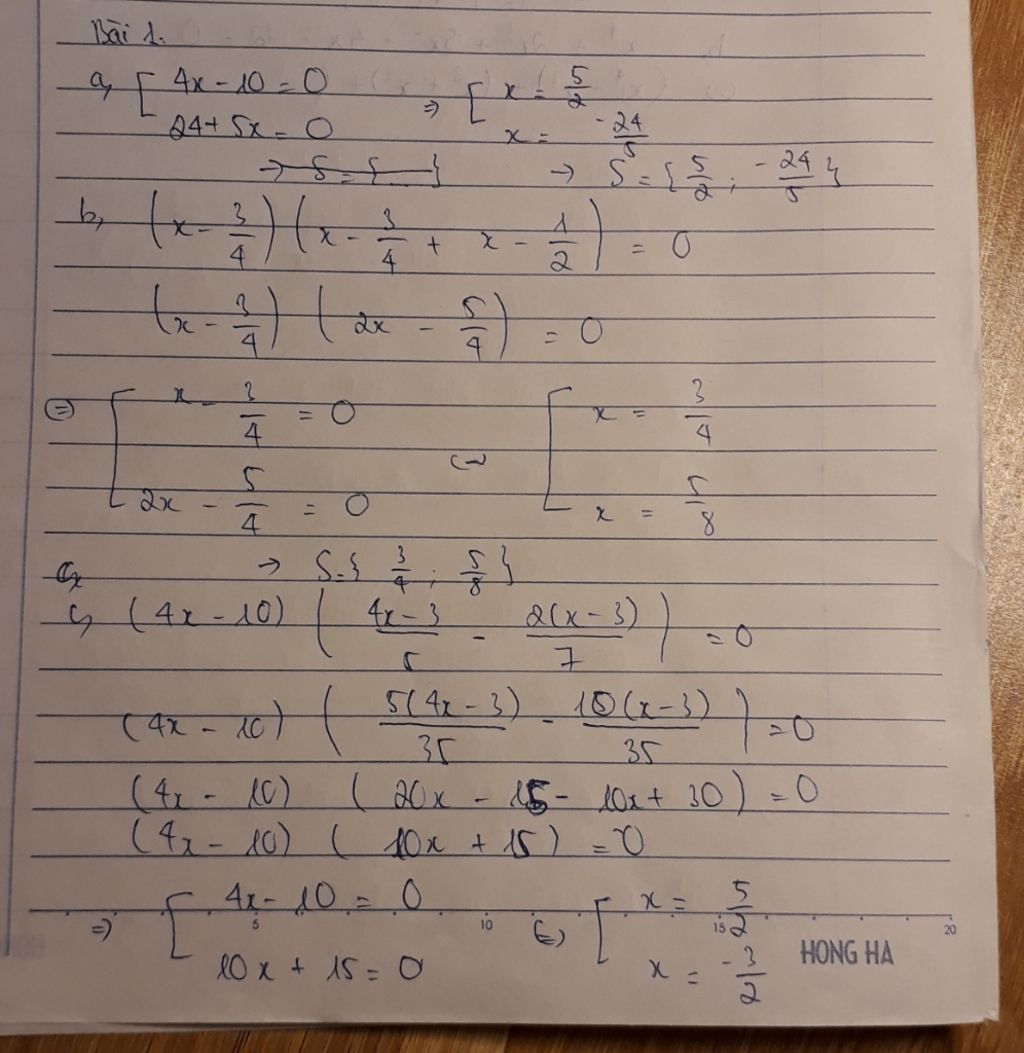 Bài 1.
a, [ 4x - 10 = 0 ⇒ [ x = 5/2
24 + 5x = 0 x = -24/5
→ S = { } → S = { 5/2 ; -24/5 }
b, (x - 3/4) (x - 3/4 + x - 1/2) = 0
(x - 3/4) (2x - 5/4) = 0
⇔ [ x - 3/4 = 0 [ x = 3/4
2x - 5/4 = 0 x = 5/8
→ S = { 3/4 ; 5/8 }
c, (4x - 10) ( (4x - 3)/5 - 2(x - 3)/7 ) = 0
(4x - 10) ( 5(4x - 3)/35 - 10(x - 3)/35 ) = 0
(4x - 10) (20x - 15 - 10x + 30) = 0
(4x - 10) (10x + 15) = 0
⇒ [ 4x - 10 = 0 ⇔ [ x = 5/2
10x + 15 = 0 x = -3/2
5 10 15 20
HONG HA